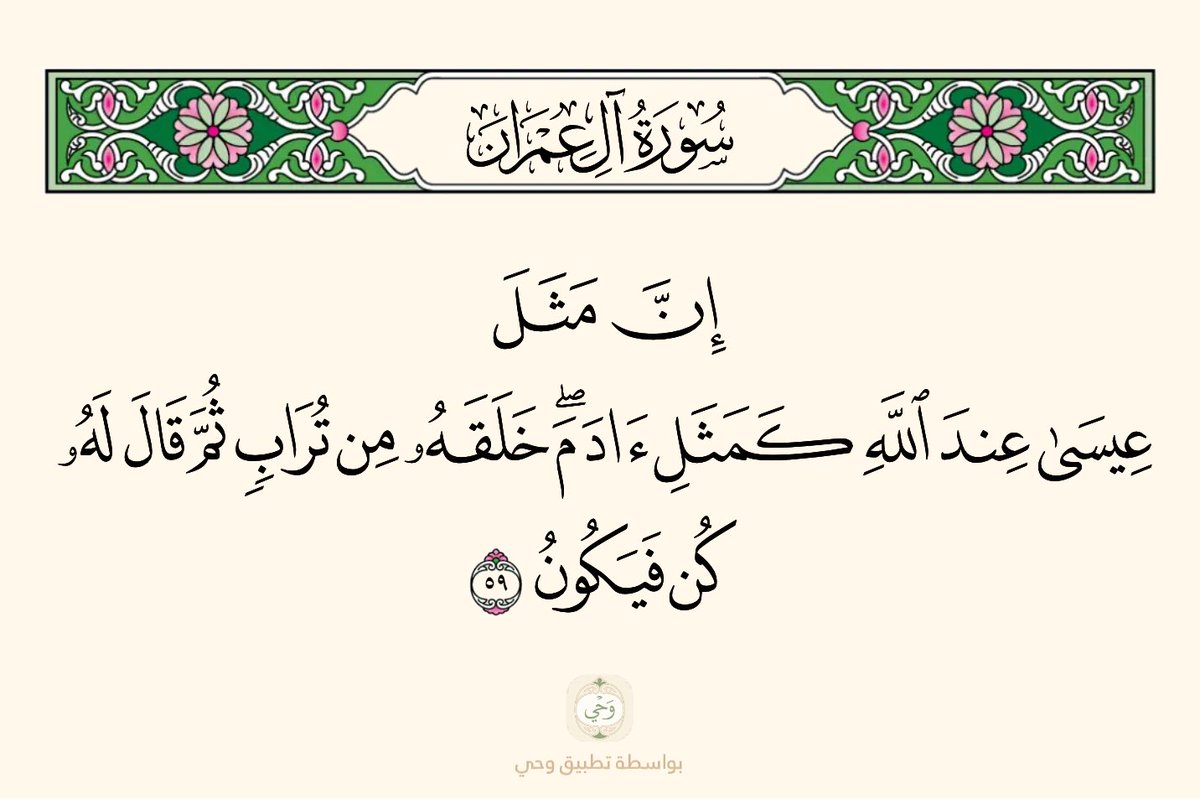 سُورَةُ آلِ عِمْرَانَ
إِنَّ مَثَلَ
عِيسَىٰ عِندَ ٱللَّهِ كَمَثَلِ ءَادَمَۖ خَلَقَهُۥ مِن تُرَابٖ ثُمَّ قَالَ لَهُۥ
كُن فَيَكُونُ ٥٩
وَحْي
بواسطة تطبيق وحي